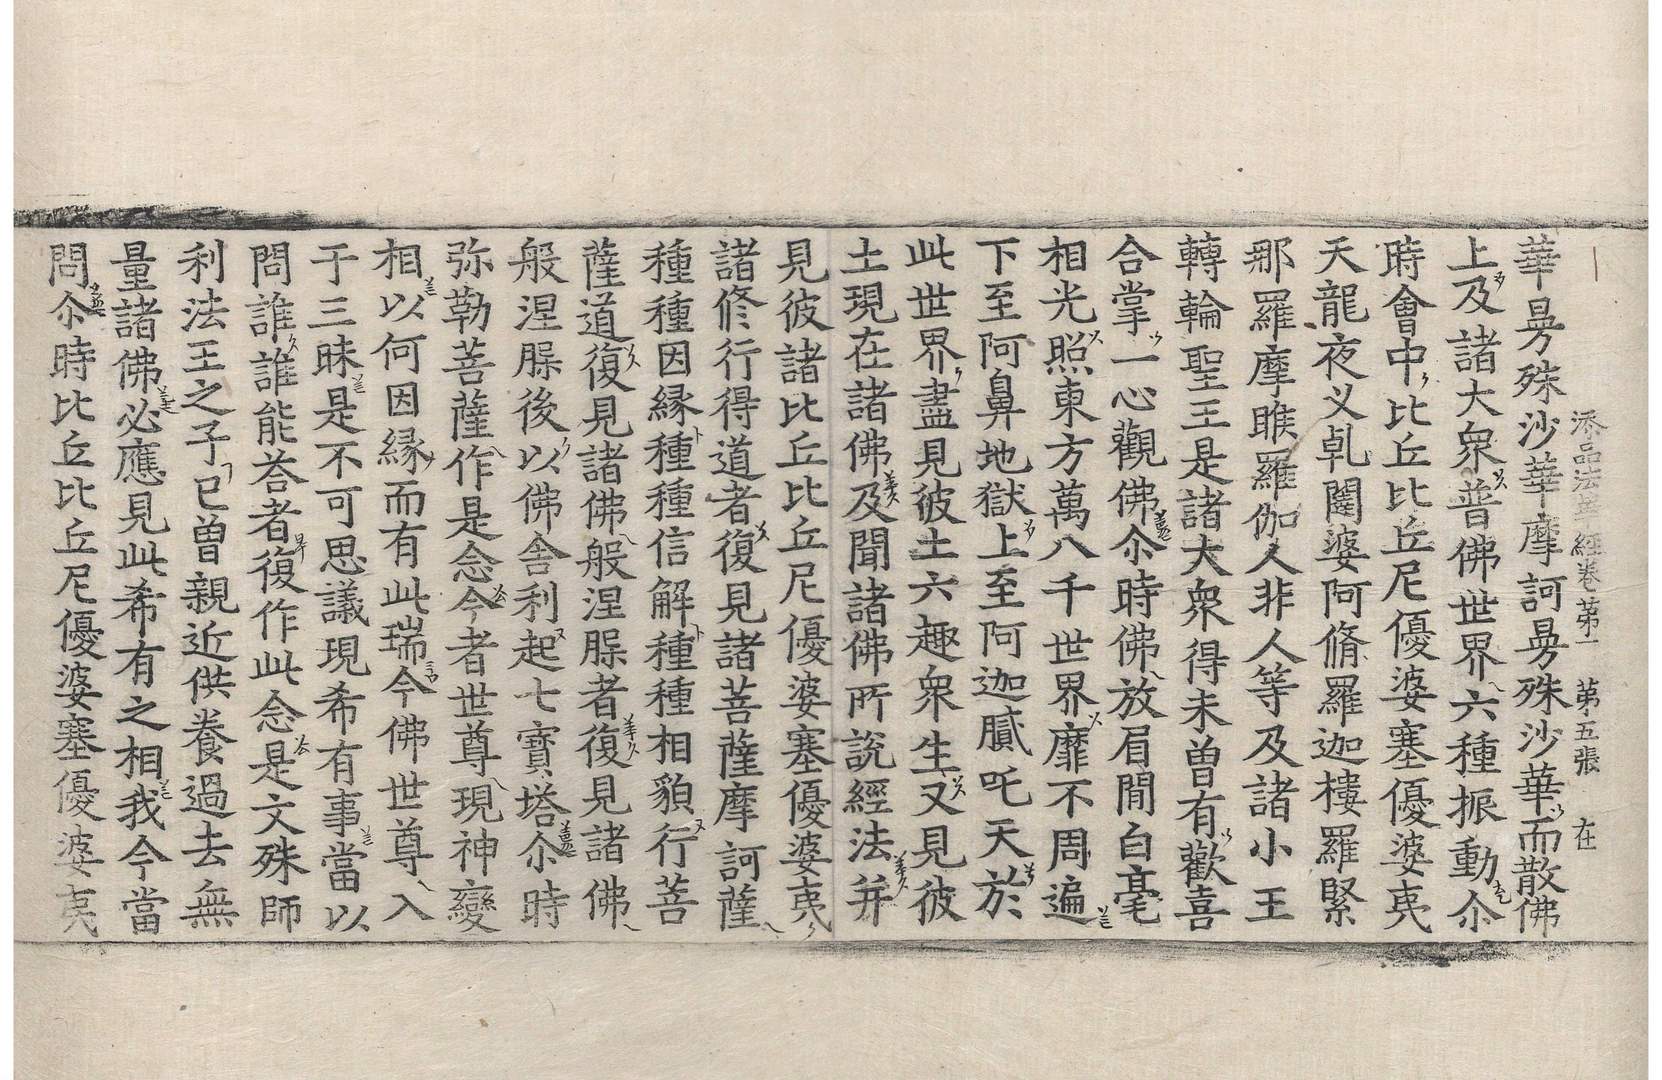 添品法華經卷第一 第五張 在
華曼殊沙華摩訶曼殊沙華而散佛
上及諸大衆普佛世界六種振動尒
時會中比丘比丘尼優婆塞優婆夷
天龍夜叉乹闥婆阿脩羅迦樓羅緊
那羅摩睺羅伽人非人等及諸小王
轉輪聖王是諸大衆得未曾有歡喜
合掌一心觀佛尒時佛放眉間白毫
相光照東方萬八千世界靡不周遍
下至阿鼻地獄上至阿迦膩吒天於
此世界盡見彼土六趣衆生又見彼
土現在諸佛及聞諸佛所說經法并
見彼諸比丘比丘尼優婆塞優婆夷
諸修行得道者復見諸菩薩摩訶薩
種種因緣種種信解種種相貌行菩
薩道復見諸佛般涅槃者復見諸佛
般涅槃後以佛舍利起七寶塔尒時
弥勒菩薩作是念今者世尊現神變
相以何因緣而有此瑞今佛世尊入
于三昧是不可思議現希有事當以
問誰誰能荅者復作此念是文殊師
利法王之子已曾親近供養過去無
量諸佛必應見此希有之相我今當
問尒時比丘比丘尼優婆塞優婆夷